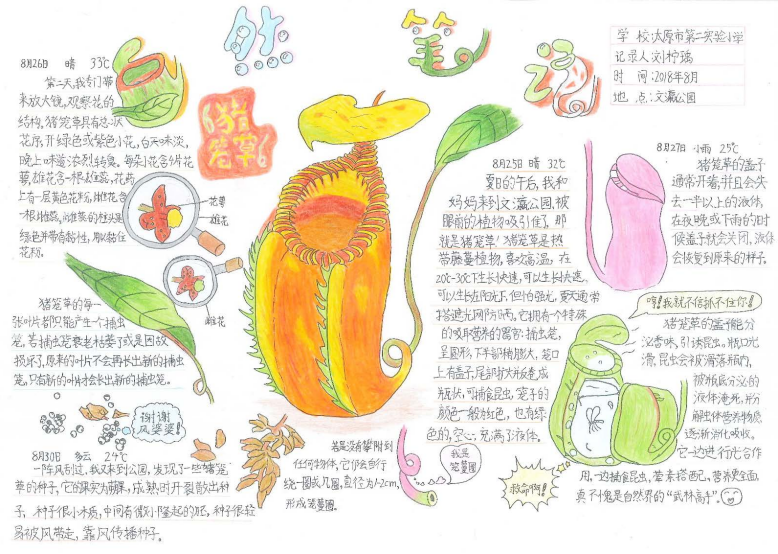 自然笔记
学 校:太原市第二实验小学
记录人:刘柠瑀
时 间:2018年8月
地 点:文瀛公园
猪笼草
8月26日 晴 33℃
第二天,我专门带
来放大镜,观察花的
结构。猪笼草具有总状
花序,开绿色或紫色小花,白天味淡,
晚上味道浓烈转臭。每朵小花含4片花
萼,雄花含一根雄蕊,花药
上有一层黄色花粉,雌花含
一根雌蕊,雌蕊的柱头是
绿色并带有黏性,用以黏住
花粉。
花萼
雄花
雌花
猪笼草的每一
张叶片都只能产生一个捕虫
笼,若捕虫笼衰老枯萎了或是因故
损坏了,原来的叶片不会再长出新的捕虫
笼,只有新的叶片才会长出新的捕虫笼。
谢谢
风婆婆!
8月30日 多云 24℃
一阵风刮过,我又来到公园,发现了一些猪笼
草的种子,它的果实为蒴果,成熟时开裂散出种
子,种子很小,木质,中间有微小隆起的胚,种子很轻
易被风带走,靠风传播种子。
8月25日 晴 32℃
夏日的午后,我和
妈妈来到文瀛公园,被
眼前的植物吸引住了,那
就是猪笼草!猪笼草是热
带藤蔓植物,喜欢高温,在
20℃-30℃下生长快速,可以生长快速,
可以生长在阳光下,但怕强光,夏天通常
搭遮光网防晒,它拥有个特殊
的吸取营养的器官:捕虫笼,
呈圆形,下半部稍膨大,笼口
上有盖子,尾部扩大并反卷成
瓶状,可捕食昆虫,笼子的
颜色一般为红色,也有绿
色的,空心,充满了液体。
若是没有攀附到
任何物体,它仍会自行
绕一圈或几圈,直径为1-2cm,
形成笼蔓圈。
我是
笼蔓圈
8月27日 小雨 25℃
猪笼草的盖子
通常开着,并且会失
去一半以上的液体,
在夜晚或下雨的时
候盖子就会关闭,液体
会恢复到原来的样子。
哼!我就不信抓不住你!
猪笼草的盖子能分
泌香味,引诱昆虫。瓶口光
滑,昆虫会被滑落瓶内,
被瓶底分泌的
液体淹死,并分
解虫体营养物质,
逐渐消化吸收。
它一边进行光合作
用,一边捕食昆虫,荤素搭配,营养更全面,
真不愧是自然界的“武林高手”。
救命啊!